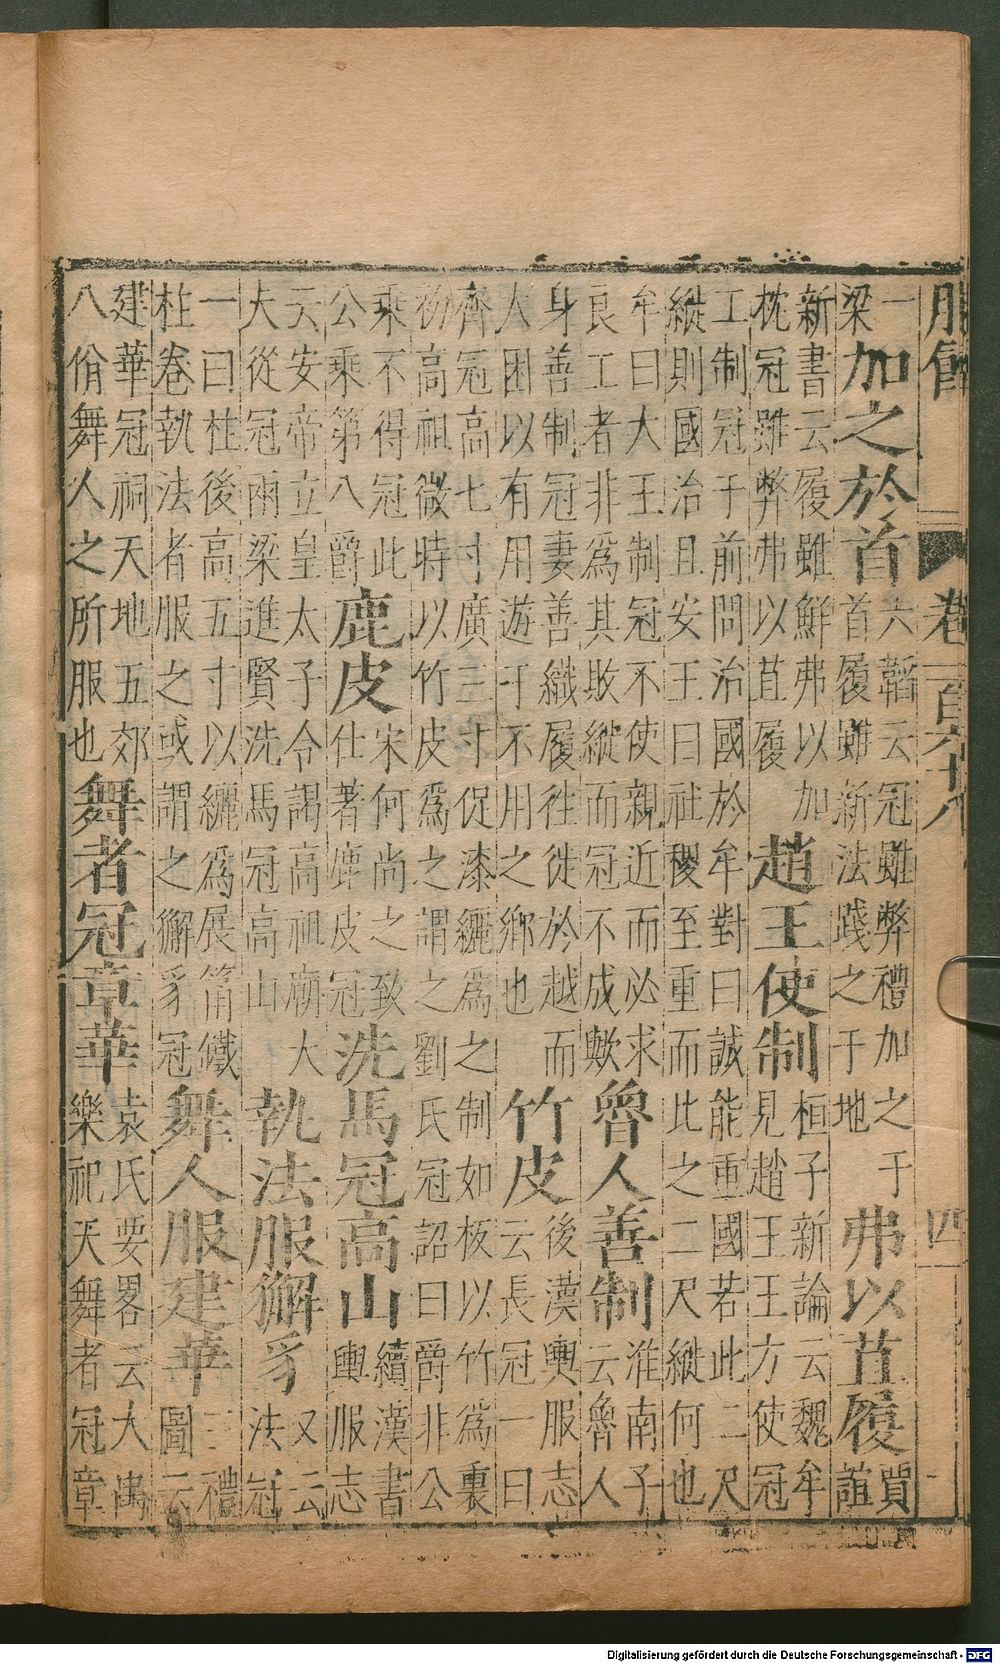 服飾 卷一百六十八 四
一梁加之於首六韜云冠雖弊禮加之于首履雖新法踐之于地弗以苴履賈誼
新書云履雖鮮弗以加枕冠雖弊弗以苴履趙王使制桓子新論云魏牟見趙王王方使冠
工制冠于前問治國於牟對曰誠能重國若此二尺縱則國治且安王曰社稷至重而比之二尺縱何也
牟曰大王制冠不使親近而必求良工者非爲其敗縱而冠不成歟魯人善制淮南子云魯人
身善制冠妻善織履往徙於越而大困以有用遊于不用之鄉也竹皮後漢輿服志云長冠一曰
齊冠高七寸廣三寸促漆纚爲之制如板以竹爲裏初高祖微時以竹皮爲之謂之劉氏冠詔曰爵非公
乘不得冠此公乘第八爵鹿皮宋何尚之致仕著鹿皮冠洗馬冠高山續漢書輿服志
云安帝立皇太子令謁高祖廟大夫從冠兩梁進賢洗馬冠高山執法服獬豸又云法冠
一曰柱後高五寸以纚爲展筩鐵柱卷執法者服之或謂之獬豸冠舞人服建華三禮圖云
建華冠祠天地五郊八佾舞人之所服也舞者冠章華袁氏要畧云大禹樂祀天舞者冠章
Digitalisierung gefördert durch die Deutsche Forschungsgemeinschaft - DFG